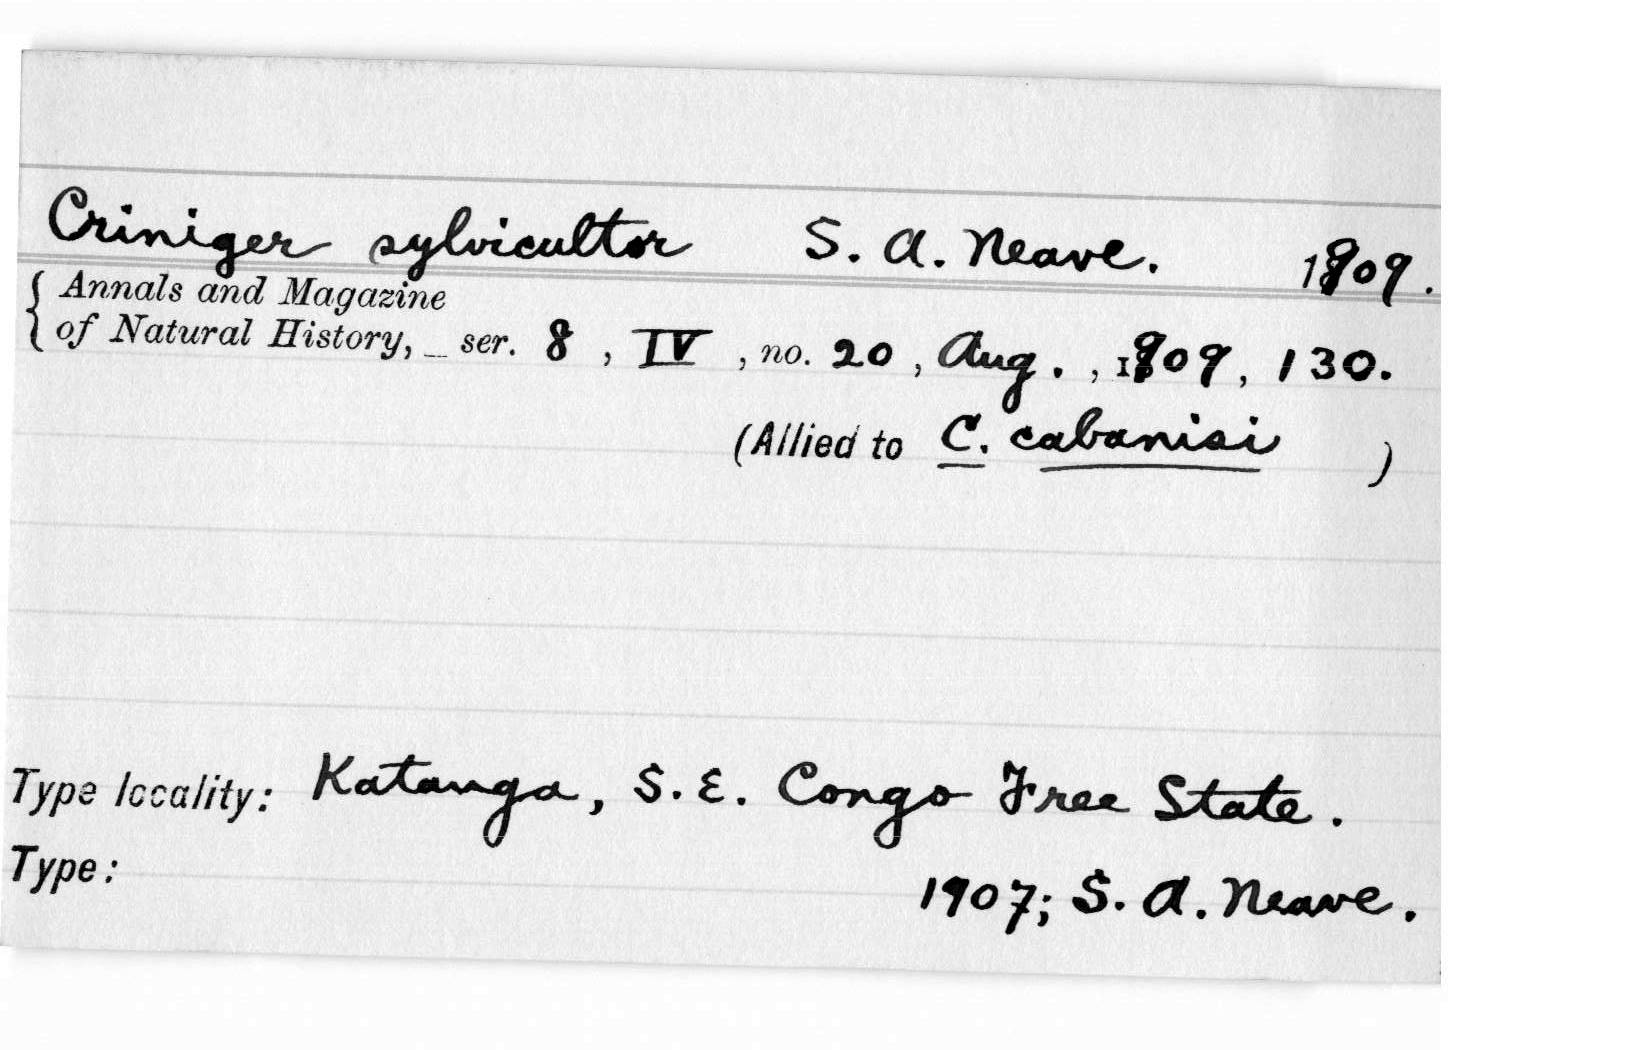 Criniger sylvicultor S. A. Neave. 1909.
{ Annals and Magazine
of Natural History, _ ser. 8, IV, no. 20, Aug., 1909, 130.
(Allied to C. cabanisi )
Type locality: Katanga, S. E. Congo Free State.
Type: 1907; S. A. Neave.